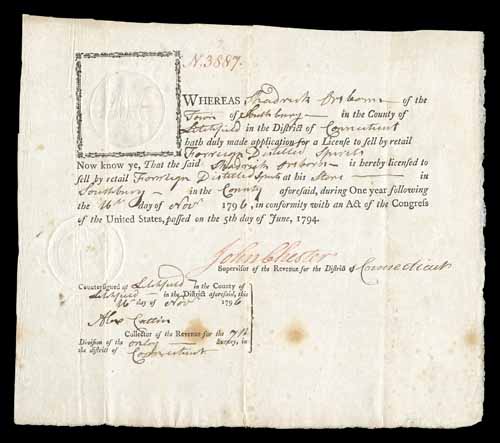 N. 3887.
WHEREAS Thadrick Osborn of the
Town of Southbury in the County of
Litchfield in the District of Connecticut
hath duly made application for a License to sell by retail
Forreign Distilled Spirits
Now know ye, That the said Thadrick Osborn is hereby licensed to
sell by retail Forreign Distilled Spirits at his Store in
Southbury in the County aforesaid, during One year following
the day of Novr 1796, in conformity with an Act of the Congress
of the United States, passed on the 5th day of June, 1794.
John Chester
Supervisor of the Revenue for the District of Connecticut
Countersigned at Litchfield in the County of
Litchfield in the District aforesaid, this
day of Novr 1796
Alex Catlin
Collector of the Revenue for the
Division of the Survey, in
the district of Connecticut